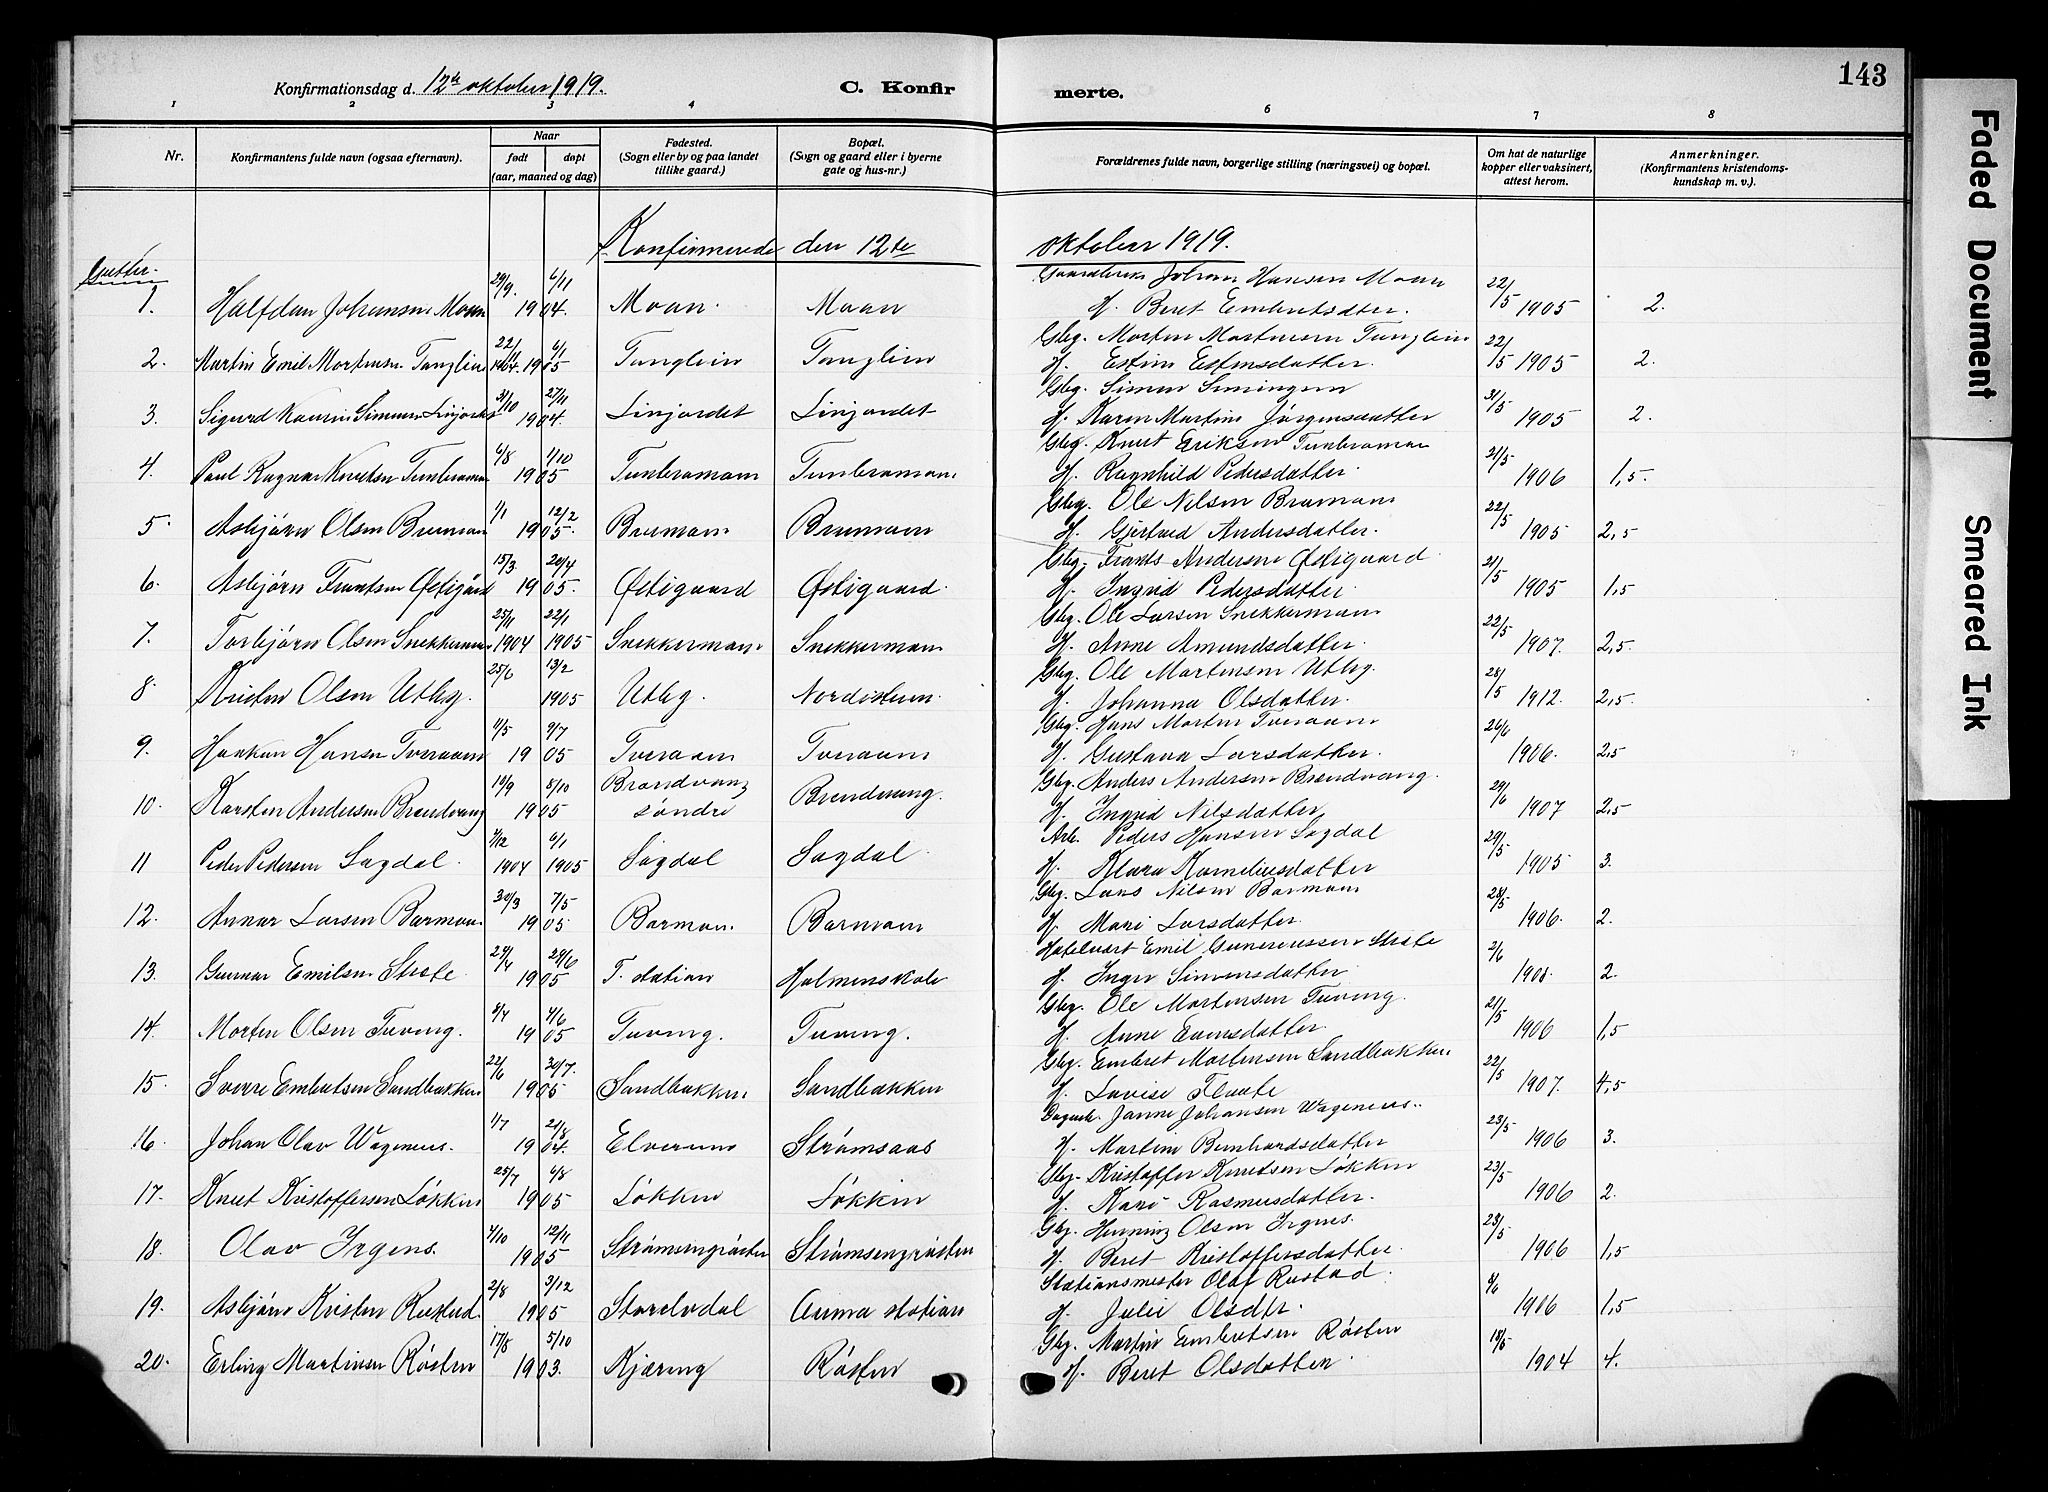 143
Konfirmationsdag d. 12te oktober 1919.
C. Konfirmerte.
1 2 3 4 6 7 8
Nr.
Konfirmantens fulde navn (ogsaa efternavn).
Naar
født døpt
(aar, maaned og dag)
Fødested.
(Sogn eller by og paa landet tillike gaard.)
Bopæl.
(Sogn og gaard eller i byerne gate og hus-nr.)
Forældrenes fulde navn, borgerlige stilling (næringsvei) og bopæl.
Om hat de naturlige kopper eller vaksinert, attest herom.
Anmerkninger.
(Konfirmantens kristendoms-kundskap m. v.).
Konfirmerede den 12te oktober 1919.
Gutter.
1. Halfdan Johansen Moan 29/9 6/11 1904. Moan. Moan Johan Hansen Moan H. Beret Embretsdter. 22/5 1905 2.
2. Martin Emil Mortensen Tanglien 22/11 1904. 6/1 1905 Tanglien Tanglien Gbg. Morten Mortensen Tanglien H. Estensdatter. 22/5 1905 2.
3. Sigurd Simensen Linjordet 31/10 27/11 1904. Linjordet Linjordet Gbg. Simen Simingsen H. Karen Martine Jørgensdatter 31/5 1905 2.
4. Paul Ragnar Knutsen Tunbraman 6/8 1/10 1905 Tunbraman Tunbraman Gbg. Knut Eriksen Tunbraman H. Ragnhild Pedersdatter. 21/5 1906 1,5.
5. Asbjørn Olsen Bruman 1/1 12/2 1905. Bruman Bruman Gbg. Ole Nilsen Bruman H. Gjertrud Andersdatter. 22/5 1905 2,5
6. Asbjørn Frantsen Østigård 15/3. 20/4 1905. Østigaard Østigaard. Gbg. Frants Andersen Østigaard H. Ingrid Pedersdatter 21/5 1905 1,5
7. Torbjørn Olsen Snekkerman 25/11 1904 22/1 1905 Snekkerman Snekkerman Gbg. Ole Larsen Snekkerman H. Anne Amundsdatter. 22/5 1907. 2,5.
8. Kristen Olsen Utbg. 25/6 13/2 1905 Utbg. Nordistuen. Gbg. Ole Martinsen Utbg. H. Johanna Olsdatter. 28/5 1912. 2,5.
9. Haakon Hansen Tveraaen 11/5 9/7 1905 Tveraaen Tveraaen Gbg. Hans Morten Tveraaen H. Gustava Larsdatter. 26/6 1906. 2,5
10. Karsten Andersen Brendvang 19/9 5/10 1905 Brandvang søndre Brendvang. Gbg. Anders Andersen Brendvang. H. Ingrid Nilsdatter 29/6 1907 2,5
11 Peder Pedersen Sagdal. 7/12 1904 6/1 1905 Sagdal Sagdal. Arb. Peders Hansen Sagdal H. Klara Korneliusdatter 29/5 1905 3.
12. Annar Larsen Barman. 30/3 7/5 1905. Barman. Barmaen Gbg. Lars Nilsen Barmaen H. Mari Larsdatter. 28/5 1906. 2.
13. Gunnar Emilsen Strøte 24/4 29/6 1905 T. station Holmenskole Hotelvært Emil H. Inger Simensdatter 2/6 1908. 2.
14. Morten Olsen Tuveng. 4/4 4/6 1905 Tuveng. Tuveng. Gbg. Ole Mortensen Tuveng. H. Anne Evensdatter. 21/5 1906 1,5
15. Sverre Embretsen Sandbakken 22/6 30/7. 1905 Sandbakken Sandbakken Gbg. Embret Mortensen Sandbakken H. Lovise Flaate 22/5 1907. 4,5
16. Johan Olav Wagenius. 1/7 21/8 1904. Elverum Strømsaas Janne Johansen Wagenius. H. Martine Bernhardsdatter 23/5 1906 3.
17. Knut Kristoffersen Løkken 25/7 6/8 1905 Løkken Løkken Gbg. Kristoffer Knutsen Løkken H. Kari Rasmusdatter. 23/5 1906 2.
18. Olav Irgens. 4/10 12/11 1905 Strømsengrøsten Strømsengrøsten Gbg. Henning Olsen Irgens. H. Beret Kristoffersdatter. 23/5 1906 1,5
19. Asbjørn Kristen Rustad. 2/8 3/12 1905 Storelvdal Auma station Stationsmester Olaf Rustad. H. Julie Olsdtr. 4/6 1906 1,5
20. Erling Martinsen Røsten 17/8 5/10 1903. Kjæreng Røsten Gbg. Martin Embretsen Røsten H. Beret Olsdatter. 18/5 1904 4.
Faded Document
Smeared Ink